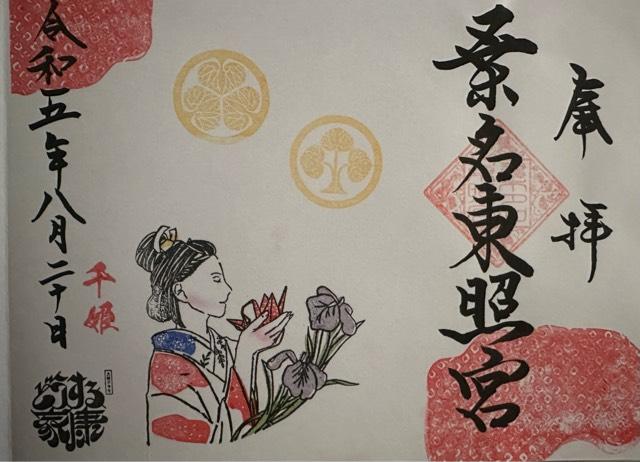 奉拝
桑名東照宮
千姫
令和五年八月二十日
どうする家康